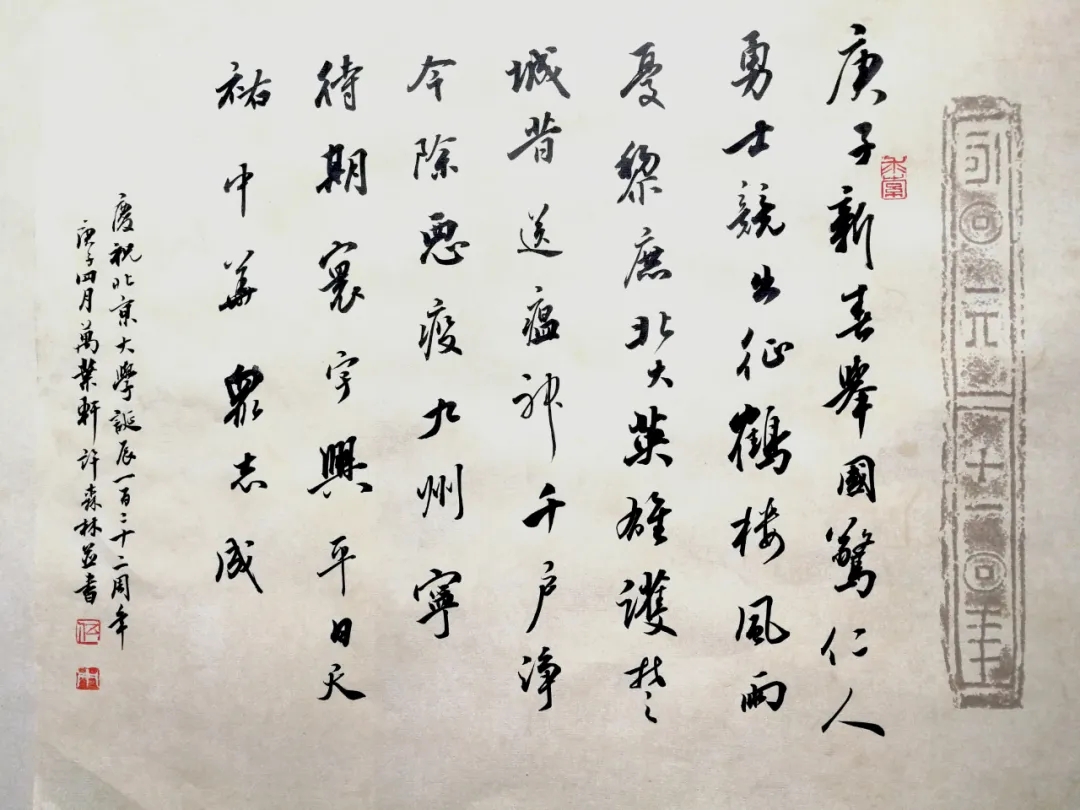 庚子新春舉國驚仁人
勇士競出征鶴楼風雨
憂黎庶北大英雄護楚
城昔送瘟神千户净
今除惡疫九州寧
待期寰宇興平日天
祐中華眾志成
慶祝北京大學誕辰一百二十二周年
庚子四月萬葉軒许森林並書